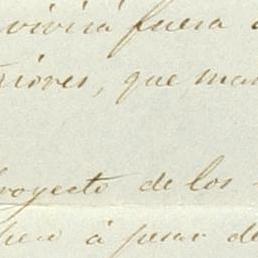 vivirá fuera
riores, que man
royecto de los
pero á pesar de